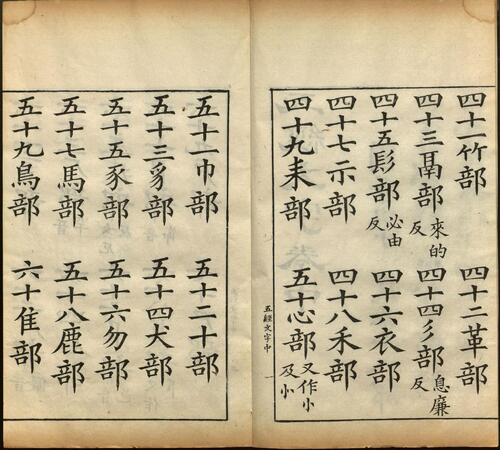 四十一竹部 四十二革部
四十三鬲部來的反 四十四彡部息廉反
四十五髟部必由反 四十六衣部
四十七示部 四十八禾部
四十九耒部 五十心部又作小及小
五經文字中 一
五十一巾部 五十二十部
五十三豸部 五十四犬部
五十五豕部 五十六勿部
五十七馬部 五十八鹿部
五十九鳥部 六十隹部